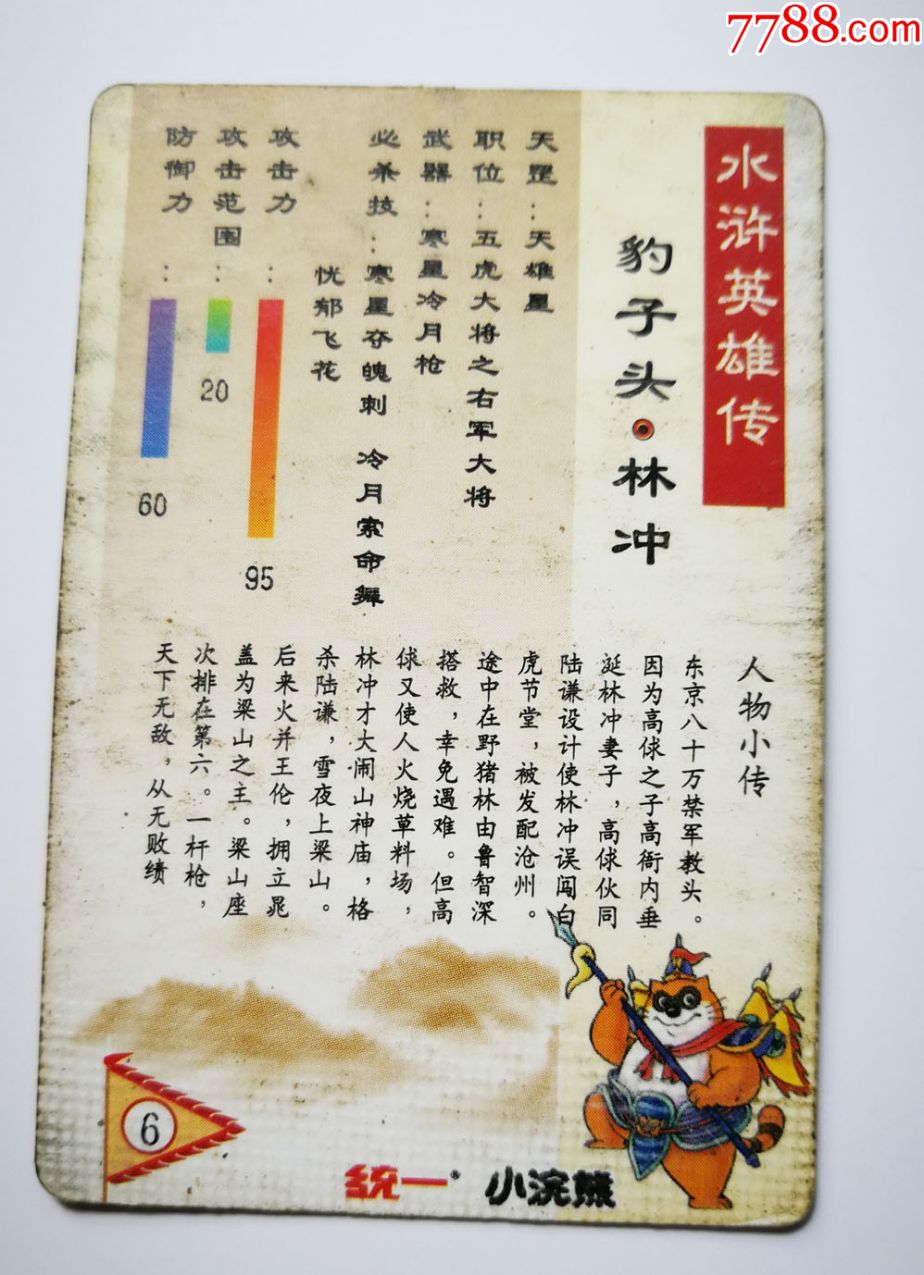 7788.com
水浒英雄传
豹子头·林冲
天罡：天雄星
职位：五虎大将之右军大将
武器：寒星冷月枪
必杀技：寒星夺魄刺 冷月索命舞
忧郁飞花
攻击力：
95
攻击范围：
20
防御力：
60
人物小传
东京八十万禁军教头。
因为高俅之子高衙内垂
涎林冲妻子，高俅伙同
陆谦设计使林冲误闯白
虎节堂，被发配沧州。
途中在野猪林由鲁智深
搭救，幸免遇难。但高
俅又使人火烧草料场，
林冲才大闹山神庙，格
杀陆谦，雪夜上梁山。
后来火并王伦，拥立晁
盖为梁山之主。梁山座
次排在第六。一杆枪，
天下无敌，从无败绩
6
统一® 小浣熊